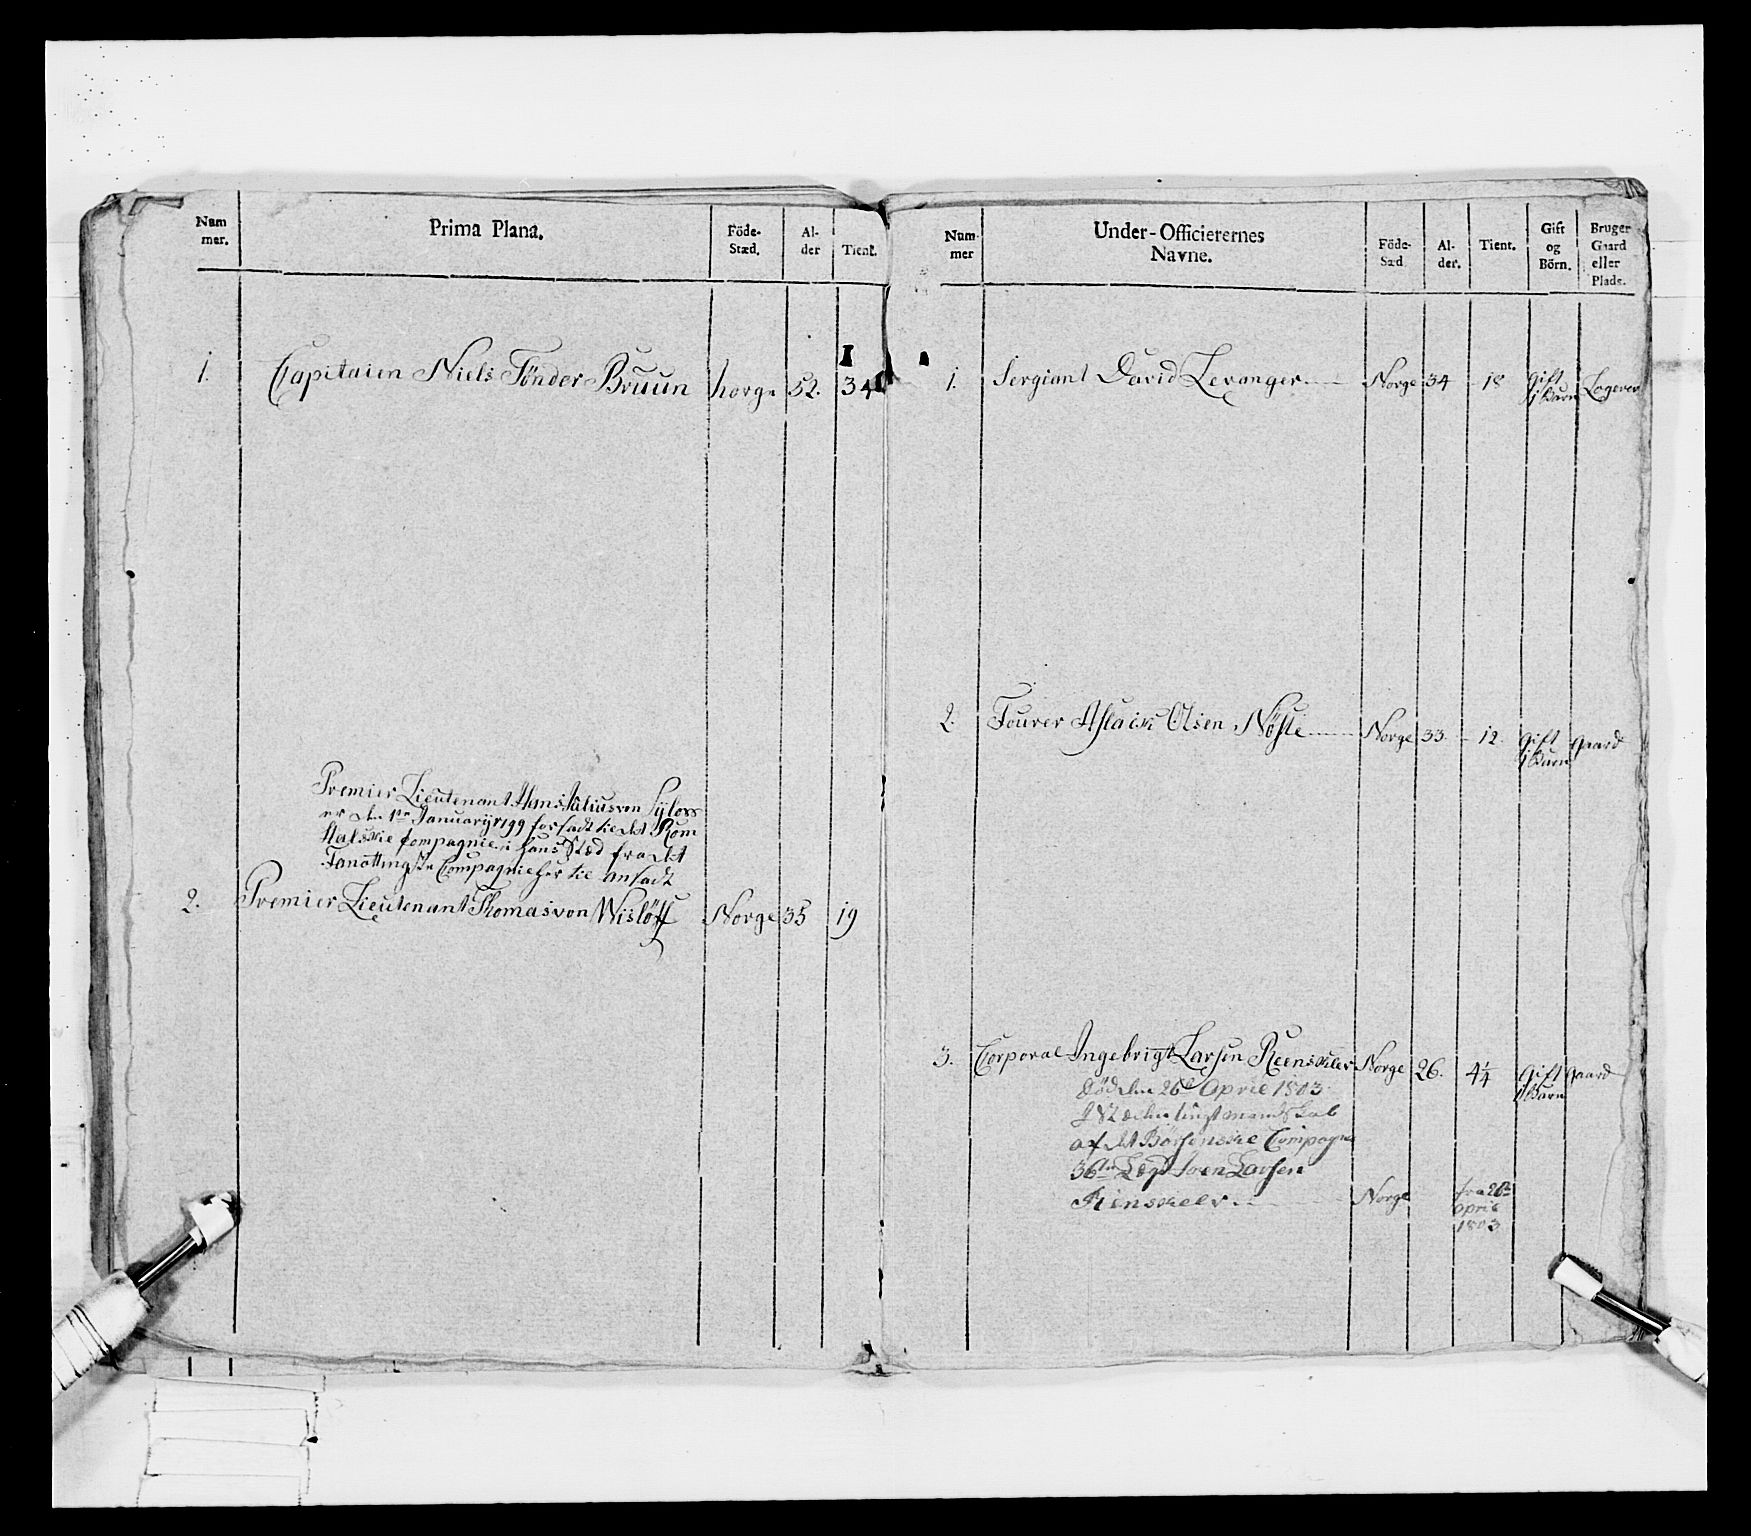 Num
mer.
Prima Plana.
Föde-
Stæd.
Al-
der
Tient.
1.
Capitaien Niels Tönder Bruun
Norge
52.
34
Premier Lieutenant Hans Julius von Sylow
er den 1te Januarij 1799 forsadt til det Rom
dalskie Compagnie, i hans Stæd fra det
Compagnie her til ansadt
2.
Premier Lieutenant Thomas von Wislöff
Norge
35
19
Num-
mer
Under-Officierernes
Navne.
Föde-
Sæd
Al-
der.
Tient.
Gift
og
Börn.
Bruger
Gaard
eller
Plads.
1.
Sergiant David Levanger
Norge
34
18
Gift
1 Barn
Logerer
2.
Fourer Aslack Olsen Nöste
Norge
33
12.
Gift
1 Barn
Gaard
3.
Corporal Ingebrigt Larsen Reenskler
Norge
26.
4 1/4
Gift
1 Barn
Gaard
död den 26d April 1803
af det Börsenske Compagnie
36te Lægd Larsen
Renskelv
Norge
fra 26de
April
1803